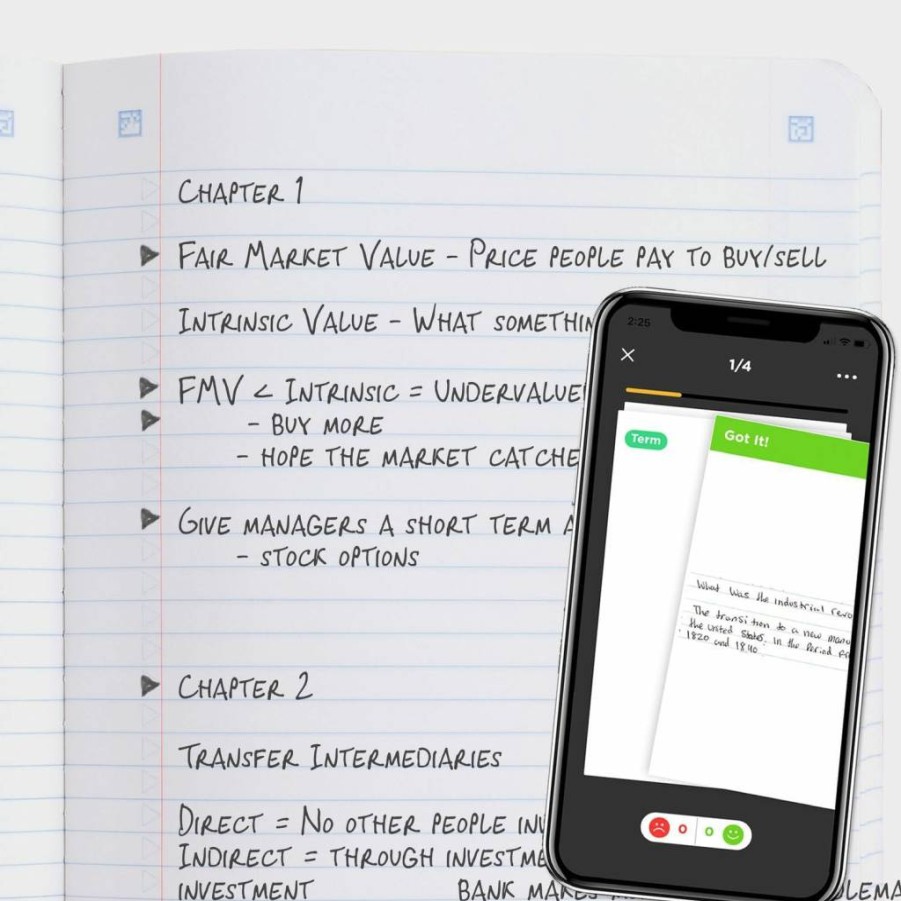 CHAPTER 1
FAIR MARKET VALUE - PRICE PEOPLE PAY TO BUY/SELL
INTRINSIC VALUE - WHAT
FMV < INTRINSIC =
- BUY MORE
- HOPE THE MARKET
GIVE MANAGERS A SHORT TERM
- STOCK OPTIONS
CHAPTER 2
TRANSFER INTERMEDIARIES
DIRECT = NO OTHER PEOPLE
INDIRECT = THROUGH
INVESTMENT BANK MAKES
2:25
1/4
Term
Got It!
What was the industrial
The transition to a new
the United States, in the Period
1820 and 1840
0 0